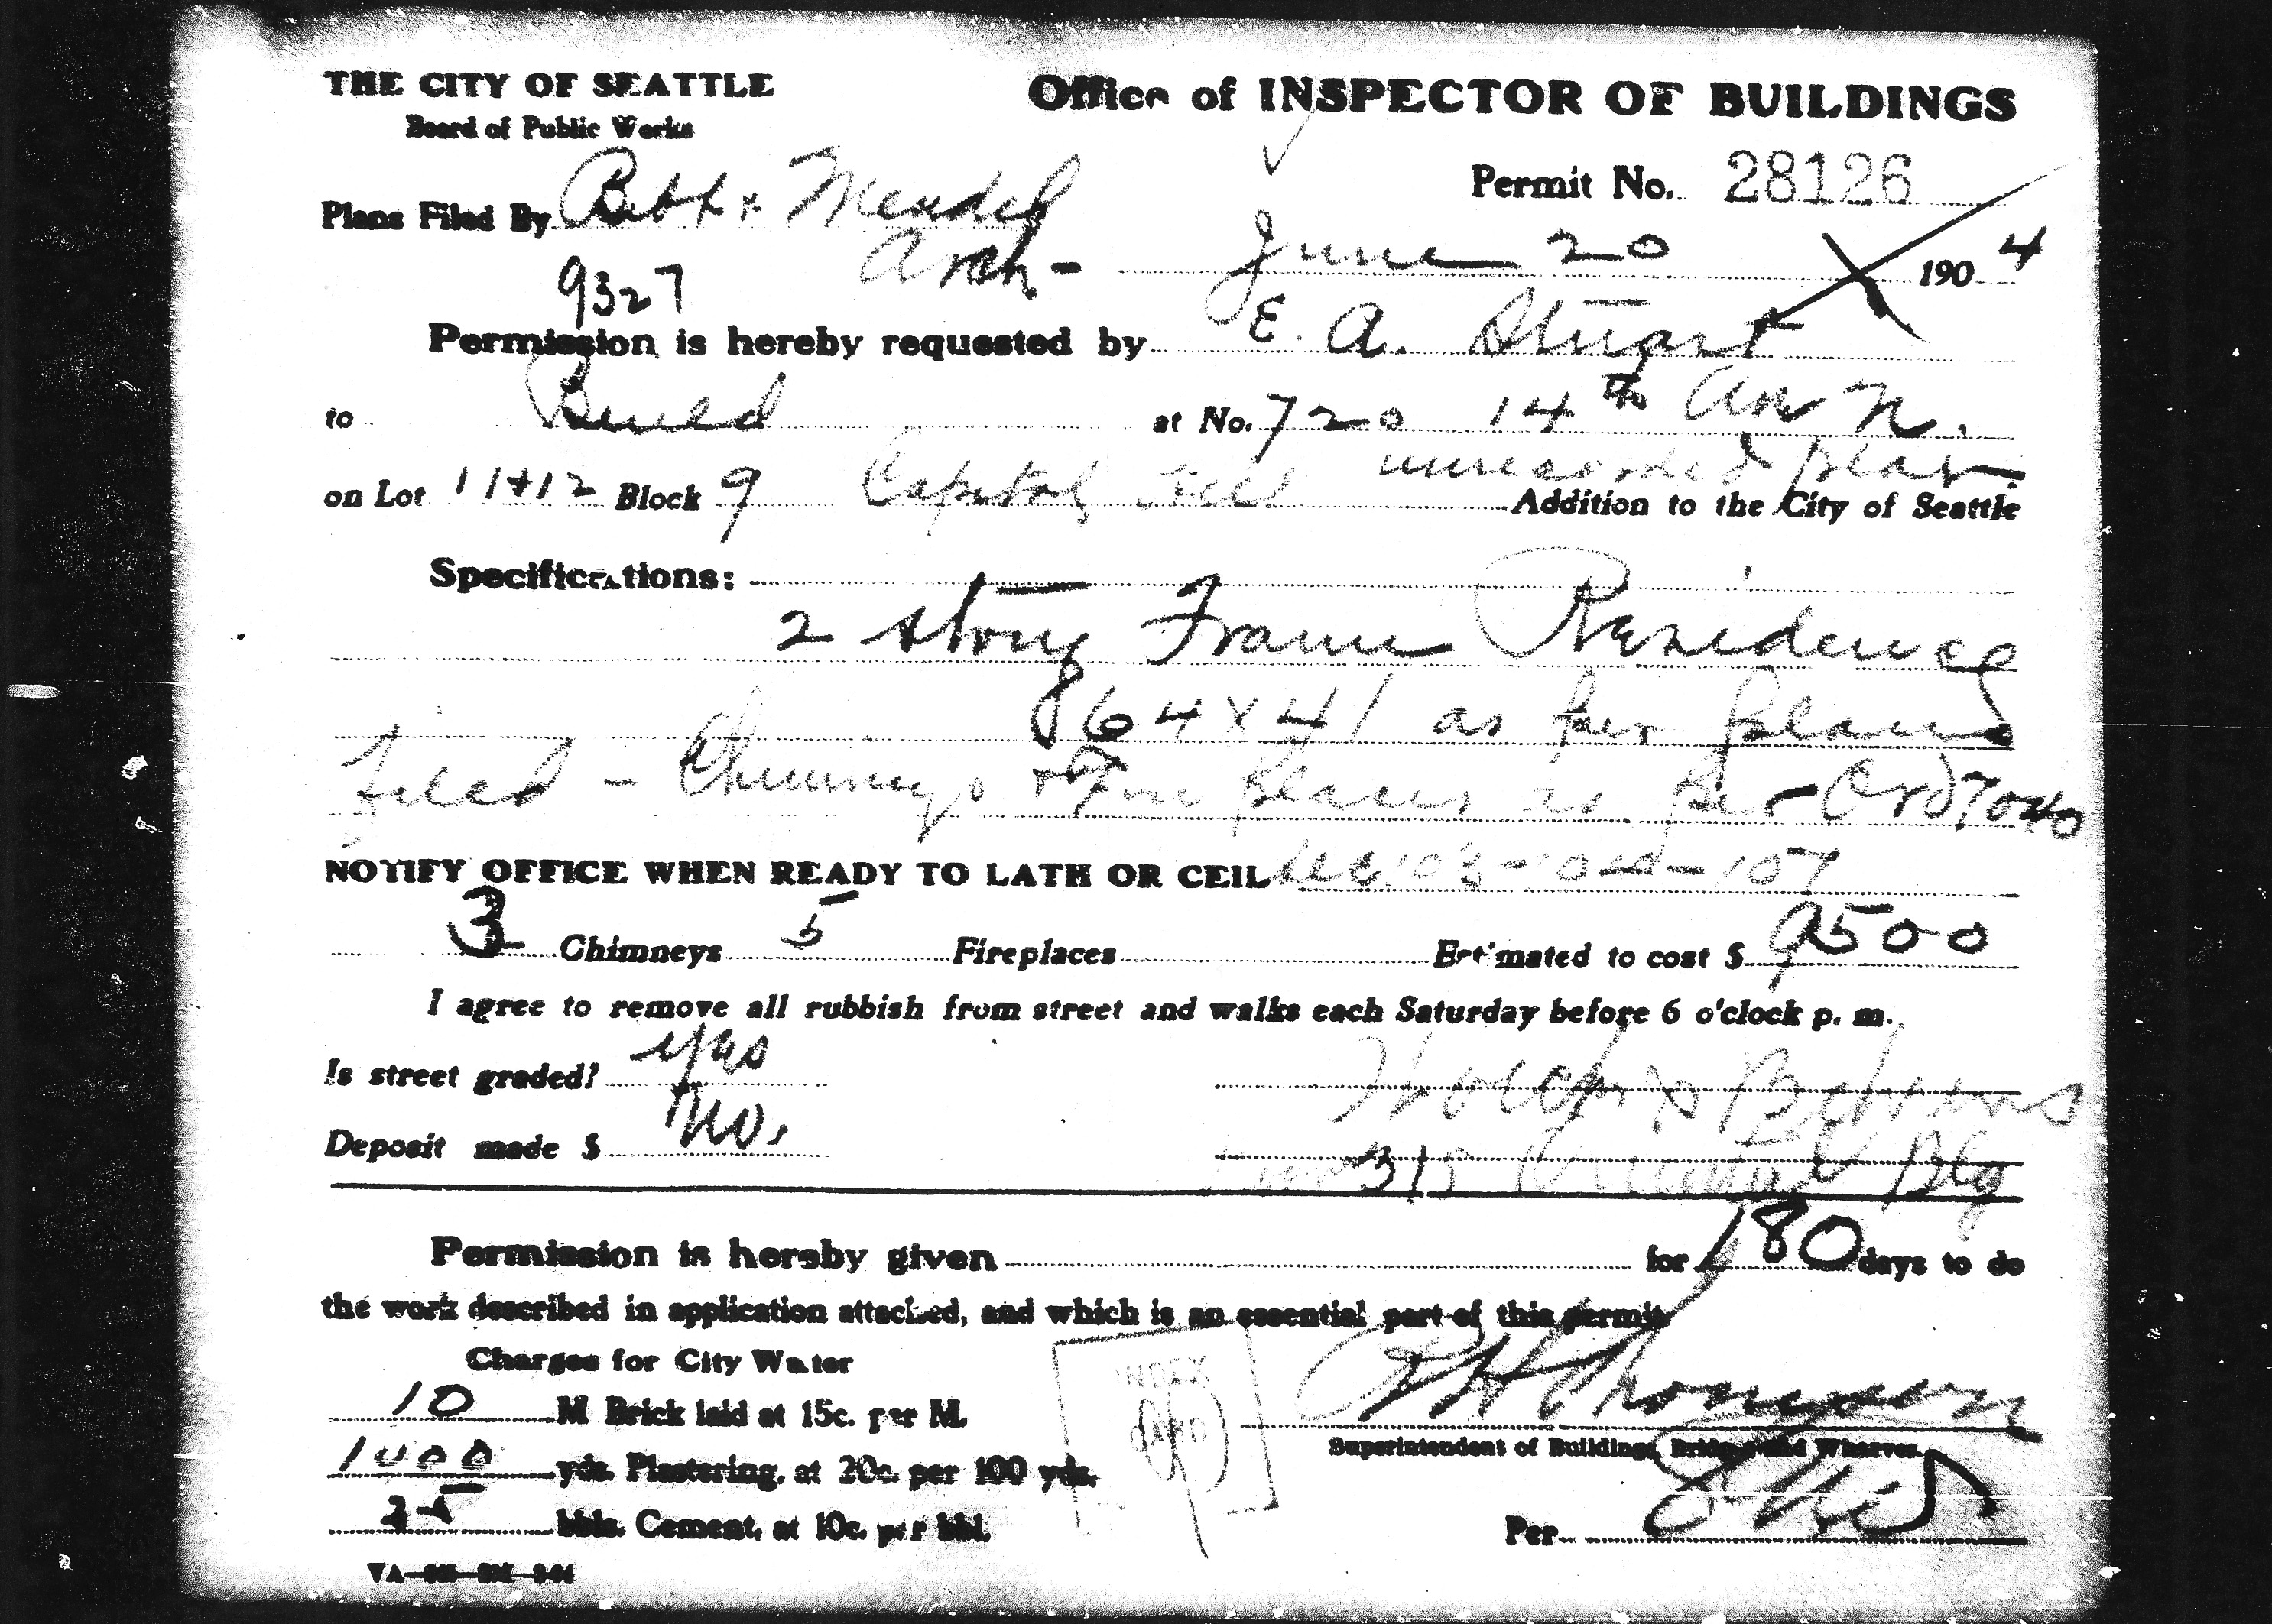 THE CITY OF SEATTLE
Board of Public Works
Office of INSPECTOR OF BUILDINGS
Permit No. 28126
Plans Filed By Bebb & Mendel
Arch-
June 20 1904
9327
Permission is hereby requested by E. A. Stuart
to Build at No. 720 14th Ave N.
unrecorded plat
on Lot 11+12 Block 9 Capitol Hill Addition to the City of Seattle
Specifications:
2 story Frame Residence
64 x 41 as per plans
filed - Chimneys & Fire places as per Ord
NOTIFY OFFICE WHEN READY TO LATH OR CEIL
3 Chimneys 5 Fireplaces Estimated to cost $ 9500
I agree to remove all rubbish from street and walks each Saturday before 6 o'clock p. m.
Is street graded? yes
Deposit made $ No.
Bldg
Permission is hereby given for 180 days to do
the work described in application attached, and which is an essential part of this permit
Charges for City Water
10 M Brick laid at 15c. per M.
1000 yds. Plastering, at 20c. per 100 yds.
25 bbls. Cement, at 10c. per bbl.
INDEX
CARD
R H Thomson
Superintendent of Buildings, Bridges and Wharves
Per